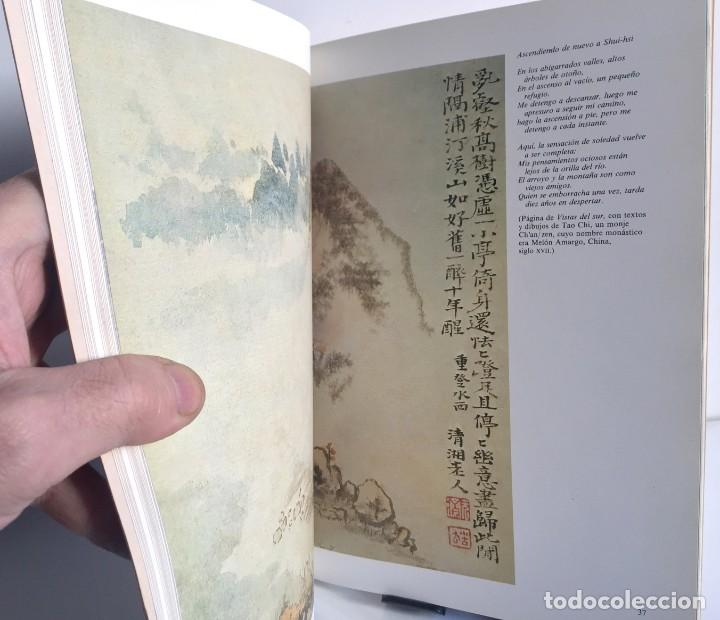 Ascendiendo de nuevo a Shui-hsi
En los abigarrados valles, altos
árboles de otoño,
En el ascenso al vacío, un pequeño
refugio.
Me detengo a descansar, luego me
apresuro a seguir mi camino,
hago la ascensión a pie, pero me
detengo a cada instante.
Aquí, la sensación de soledad vuelve
a ser completa;
Mis pensamientos ociosos están
lejos de la orilla del río.
El arroyo y la montaña son como
viejos amigos.
Quien se emborracha una vez, tarda
diez años en despertar.
(Página de Vistas del sur, con textos
y dibujos de Tao Chi, un monje
Ch'an/zen, cuyo nombre monástico
era Melón Amargo, China,
siglo XVII.)
亂壑秋高樹憑虛一小亭倚身還怯〻登足且停〻幽意盡歸此閒
情隔浦汀溪山如好舊一醉十年醒
重登水西
清湘老人
37
todocoleccion
todocoleccion.net